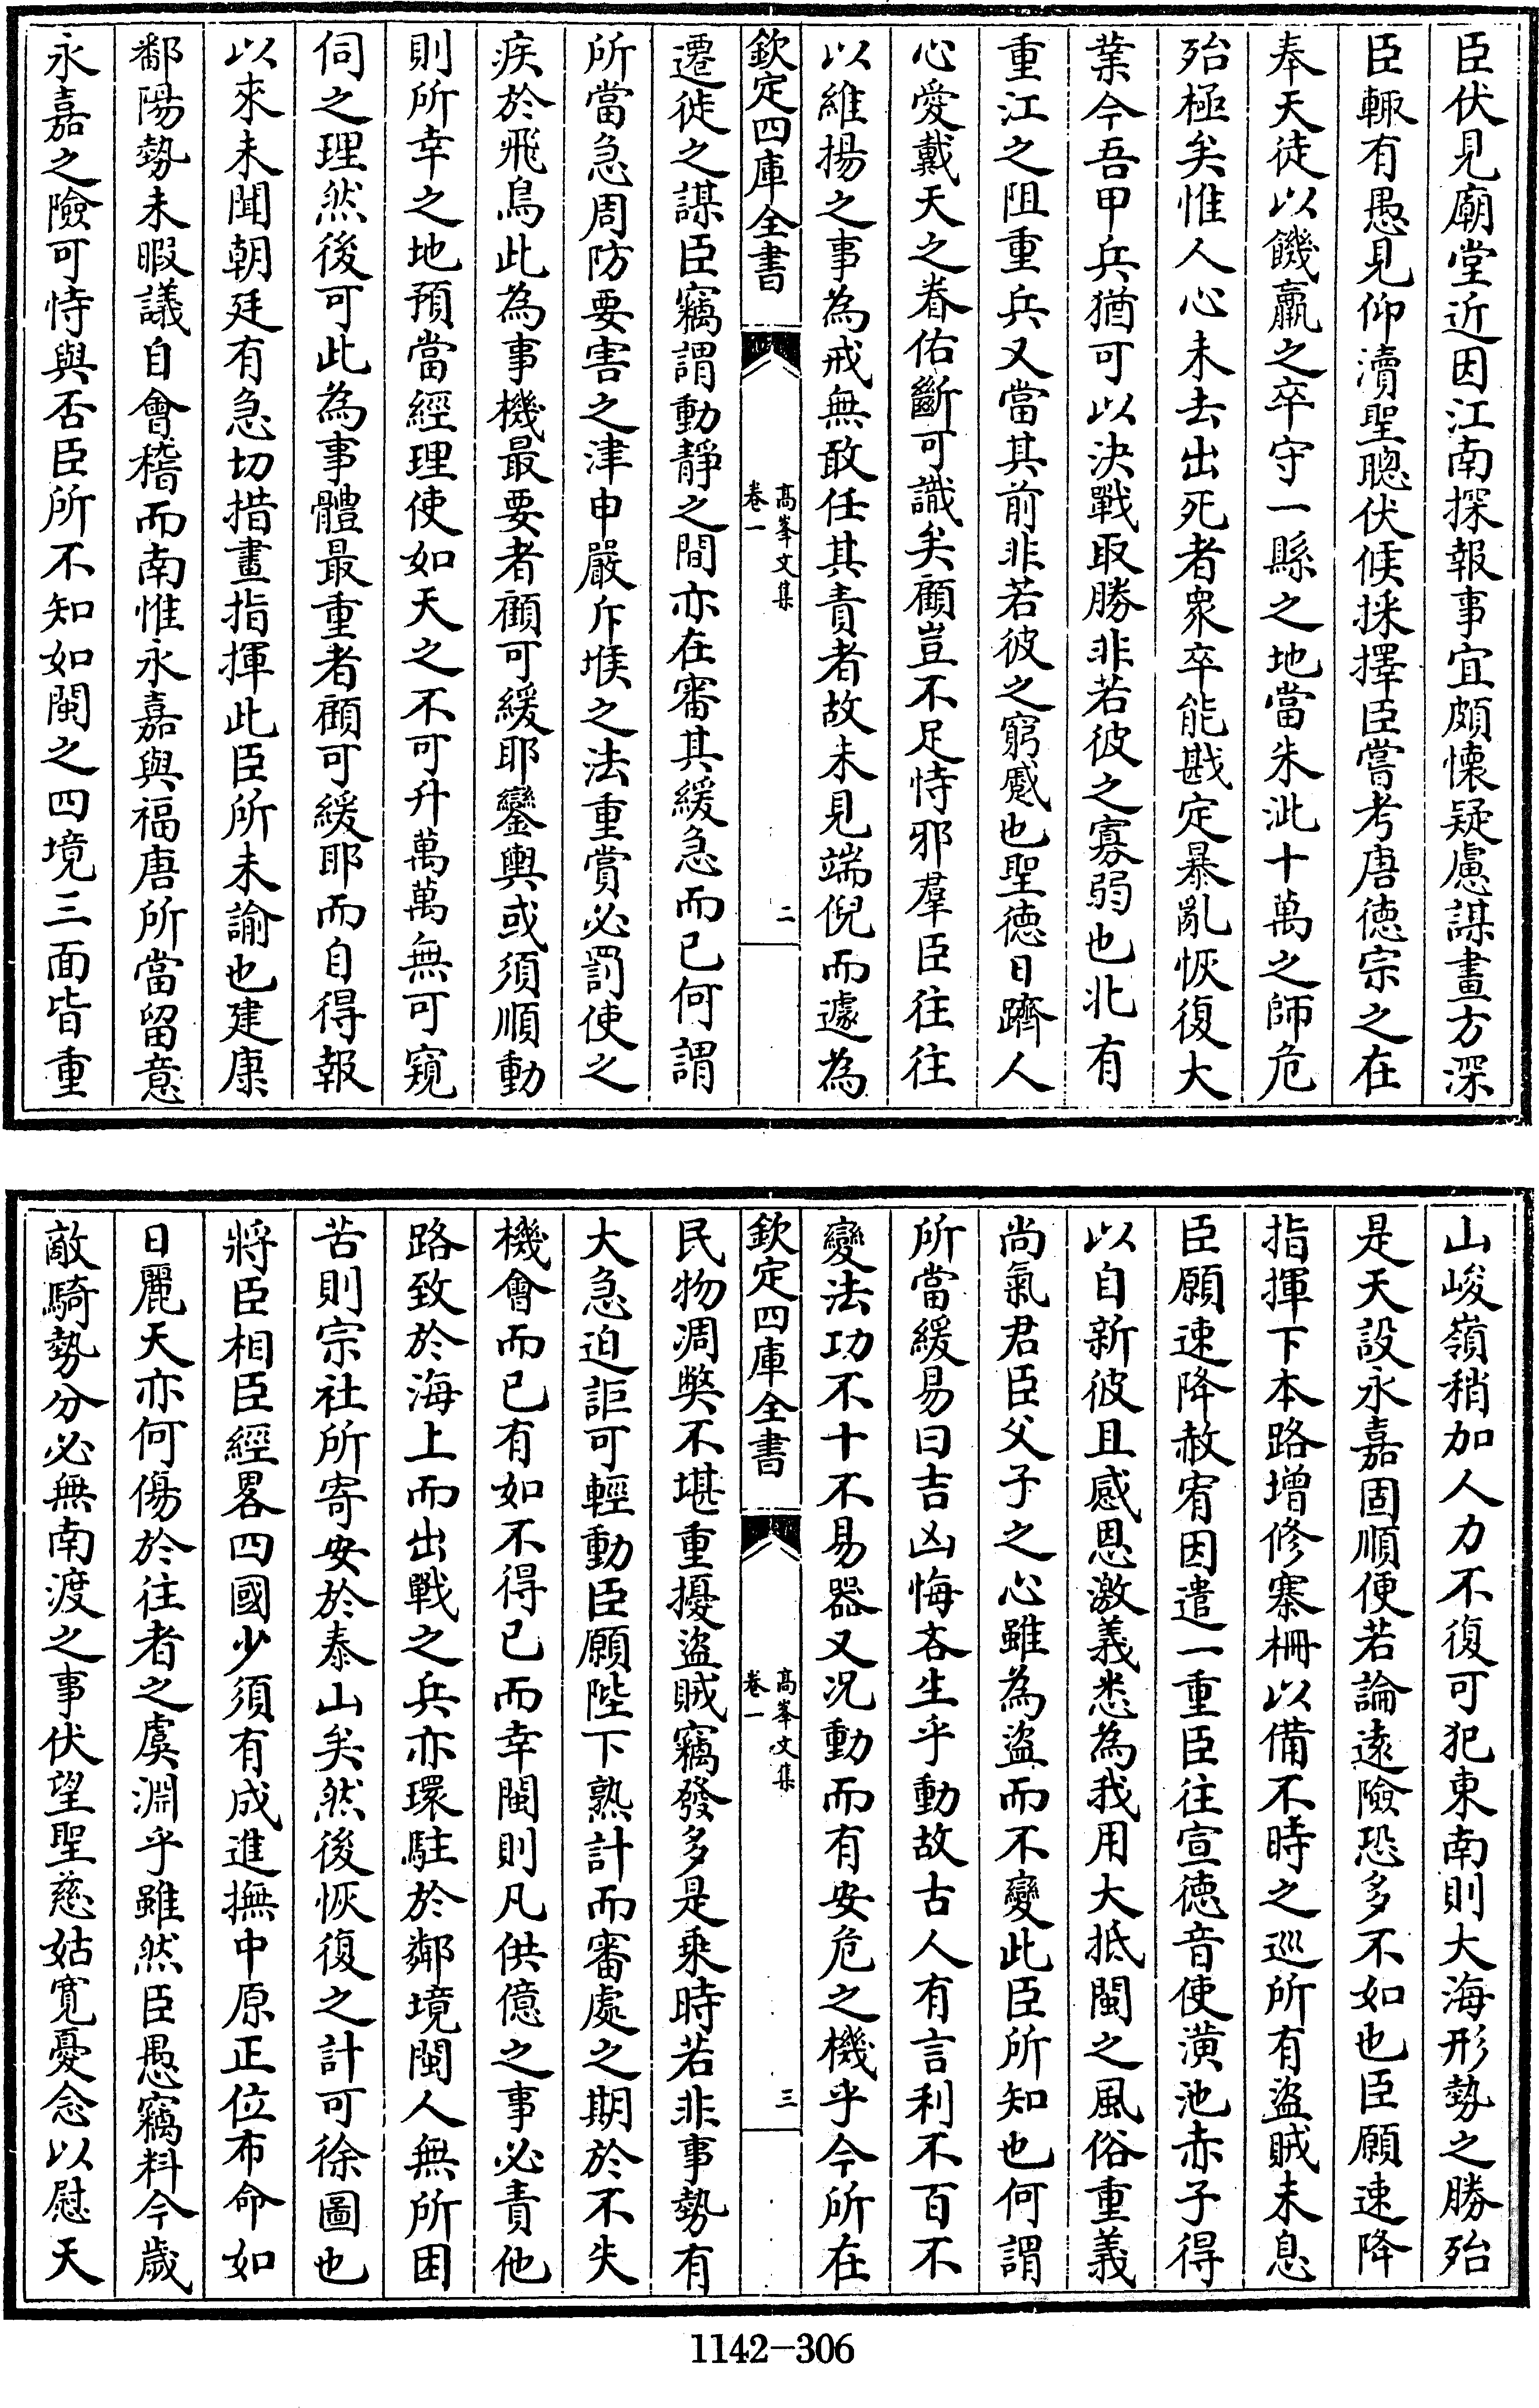 臣伏見廟堂近因江南探報事宜頗懐疑慮謀畫方深
臣輙有愚見仰瀆聖聰伏候採擇臣嘗考唐徳宗之在
奉天徒以饑羸之卒守一縣之地當朱泚十萬之師危
殆極矣惟人心未去出死者衆卒能戡定暴亂恢復大
業今吾甲兵猶可以決戰取勝非若彼之寡弱也北有
重江之阻重兵又當其前非若彼之窮蹙也聖徳日躋人
心愛戴天之眷佑斷可識矣顧豈不足恃邪羣臣往往
以維揚之事為戒無敢任其責者故未見端倪而遽為
欽定四庫全書
高峯文集
卷一
二
遷徙之謀臣竊謂動靜之間亦在審其緩急而已何謂
所當急周防要害之津申嚴斥堠之法重賞必罰使之
疾於飛鳥此為事機最要者顧可緩耶鑾輿或須順動
則所幸之地預當經理使如天之不可升萬萬無可窺
伺之理然後可此為事體最重者顧可緩耶而自得報
以來未聞朝廷有急切措畫指揮此臣所未諭也建康
鄱陽勢未暇議自會稽而南惟永嘉與福唐所當留意
永嘉之險可恃與否臣所不知如閩之四境三面皆重
山峻嶺稍加人力不復可犯東南則大海形勢之勝殆
是天設永嘉固順便若論遠險恐多不如也臣願速降
指揮下本路增修寨柵以備不時之巡所有盜賊未息
臣願速降赦宥因遣一重臣往宣徳音使潢池赤子得
以自新彼且感恩激義悉為我用大抵閩之風俗重義
尚氣君臣父子之心雖為盜而不變此臣所知也何謂
所當緩易曰吉凶悔吝生乎動故古人有言利不百不
變法功不十不易器又况動而有安危之機乎今所在
欽定四庫全書
高峯文集
卷一
三
民物凋獘不堪重擾盜賊竊發多是乘時若非事勢有
大急迫詎可輕動臣願陛下熟計而審處之期於不失
機會而已有如不得已而幸閩則凡供億之事必責他
路致於海上而出戰之兵亦環駐於鄰境閩人無所困
苦則宗社所寄安於泰山矣然後恢復之計可徐圖也
將臣相臣經畧四國少須有成進撫中原正位布命如
日麗天亦何傷於往者之虞淵乎雖然臣愚竊料今歲
敵騎勢分必無南渡之事伏望聖慈姑寬憂念以慰天
1142-306